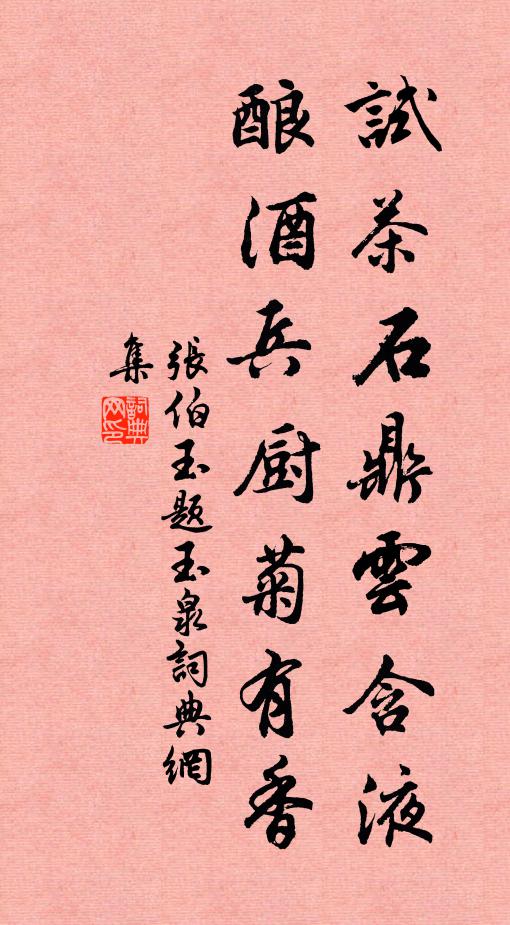 試茶石鼎雲含液
酿酒兵厨菊有香
張伯玉题玉泉詞典網
集
詞典網印